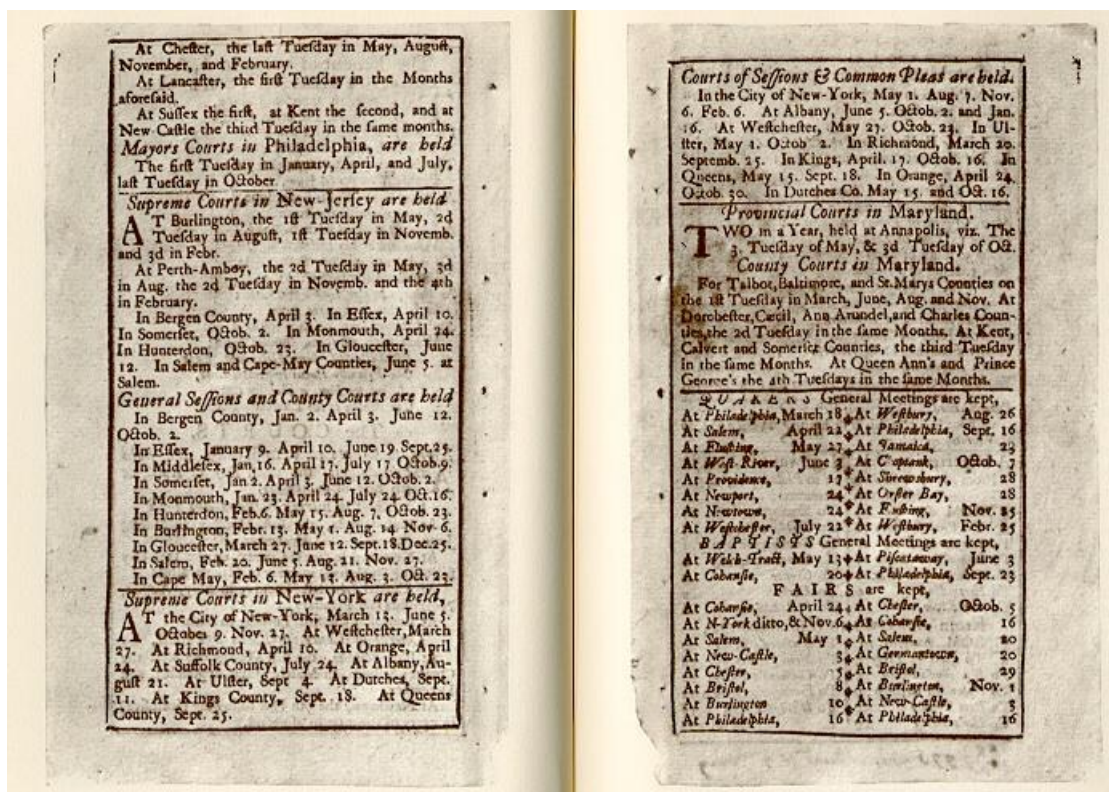 At Cheſter, the laſt Tueſday in May, Auguſt,
November, and February.
At Lancaſter, the firſt Tueſday in the Months
aforeſaid.
At Suſſex the firſt, at Kent the ſecond, and at
New Caſtle the third Tueſday in the ſame months.
Mayors Courts in Philadelphia, are held
The firſt Tueſday in January, April, and July,
laſt Tueſday in October
Supreme Courts in New-Jerſey are held
AT Burlington, the 1ſt Tueſday in May, 2d
Tueſday in Auguſt, 1ſt Tueſday in Novemb.
and 3d in Febr.
At Perth-Amboy, the 2d Tueſday in May, 3d
in Aug. the 2d Tueſday in Novemb. and the 4th
in February.
In Bergen County, April 3. In Eſſex, April 10.
In Somerſet, Octob. 2. In Monmouth, April 24.
In Hunterdon, Octob. 23. In Glouceſter, June
12. In Salem and Cape-May Counties, June 5. at
Salem.
General Seſſions and County Courts are held
In Bergen County, Jan. 2. April 3. June 12.
Octob. 2.
In Eſſex, January 9. April 10. June 19 Sept.25.
In Middleſex, Jan.16. April 17. July 17 Octob.9.
In Somerſet, Jan 2. April 3. June 12. Octob. 2.
In Monmouth, Jan. 23. April 24. July 24 Oct.16.
In Hunterdon, Feb.6. May 15. Aug. 7, Octob. 23.
In Burlington, Febr. 13. May 1. Aug. 14 Nov 6.
In Glouceſter, March 27. June 12. Sept.18.Dec.25.
In Salem, Feb. 20. June 5. Aug. 21. Nov. 27.
In Cape May, Feb. 6. May 13. Aug. 3. Oct. 23.
Supreme Courts in New-York are held,
AT the City of New-York, March 13. June 5.
October 9. Nov. 27. At Weſtcheſter, March
27. At Richmond, April 10. At Orange, April
24. At Suffolk County, July 24. At Albany, Au-
guſt 21. At Ulſter, Sept 4. At Dutches, Sept.
11. At Kings County, Sept. 18. At Queens
County, Sept. 25.
Courts of Seſſions & Common Pleas are held.
In the City of New-York, May 1. Aug. 7. Nov.
6. Feb. 6. At Albany, June 5. Octob. 2. and Jan.
16. At Weſtcheſter, May 27. Octob. 23. In Ul-
ſter, May 1. Octob 2. In Richmond, March 20.
Septemb. 25. In Kings, April. 17. Octob. 16. In
Queens, May 15. Sept. 18. In Orange, April 24.
Octob. 30. In Dutches Co. May 15. and Oct. 16.
Provincial Courts in Maryland.
TWO in a Year, held at Annapolis, viz. The
3. Tueſday of May, & 3d Tueſday of Oct.
County Courts in Maryland.
For Talbot, Baltimore, and St.Marys Counties on
the 1ſt Tueſday in March, June, Aug. and Nov. At
Dorcheſter, Cæcil, Ann Arundel, and Charles Coun-
ties,the 2d Tueſday in the ſame Months. At Kent,
Calvert and Somerſet Counties, the third Tueſday
in the ſame Months. At Queen Ann's and Prince
George's the 4th Tueſdays in the ſame Months.
QUAKERS General Meetings are kept,
At Philadelphia, March 18 At Weſtbury, Aug. 26
At Salem, April 22 At Philadelphia, Sept. 16
At Fluſhing, May 27 At Jamaica, 23
At Weſt-River, June 3 At Captank, Octob. 7
At Providence, 17 At Shrewsbury, 28
At Newport, 24 At Oyſter Bay, 28
At Newtown, 24 At Fluſhing, Nov. 25
At Weſtcheſter, July 22 At Weſtbury, Febr. 25
BAPTISTS General Meetings are kept,
At Welch-Tract, May 13 At Piſcataway, June 3
At Cohanſie, 20 At Philadelphia, Sept. 23
FAIRS are kept,
At Cohanſie, April 24 At Cheſter, Octob. 5
At N-York ditto, & Nov.6 At Cohanſie, 16
At Salem, May 1 At Salem, 20
At New-Caſtle, 3 At Germantown, 20
At Cheſter, 5 At Briſtol, 29
At Briſtol, 8 At Burlington, Nov. 1
At Burlington 10 At New-Caſtle, 3
At Philadelphia, 16 At Philadelphia, 16